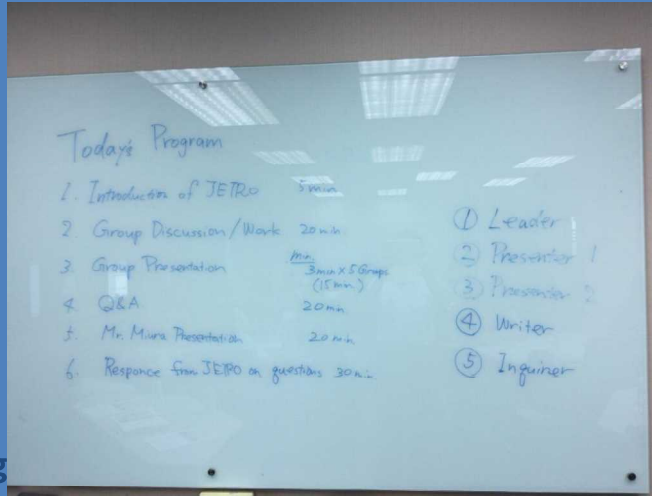 Today's Program
1. Introduction of JETRO 5min
2. Group Discussion/Work 20min
3. Group Presentation min 3min×5Groups
(15min)
4. Q&A 20min
5. Mr. Miura Presentation 20min
6. Responce from JETRO on questions 30min
① Leader
② Presenter 1
③ Presenter 2
④ Writer
⑤ Inquirer
g